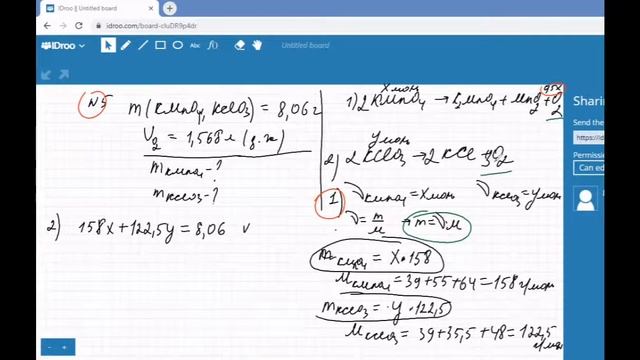 IDroo || Untitled board
idroo.com/board-cluDR9p4dr
IDroo
Untitled board
N5
m(KMnO4, KClO3) = 8,06 г
m KMnO4 - ?
m KClO3 - ?
2) 158x + 122,5y = 8,06 v
x моль
1) 2KMnO4 → K2MnO4 + MnO2 + O2
y моль
2) 2KClO3 → 2KCl 3O2
1
ν KMnO4 = x моль ν KClO3 = y моль
ν = m/M → m = ν·M
= x • 158
M KMnO4 = 39+55+64 = 158 г/моль
m KClO3 = y • 122,5
M KClO3 = 39+35,5+48 = 122,5 г/моль
Sharin
Send the
https://id
Permission
Can edi